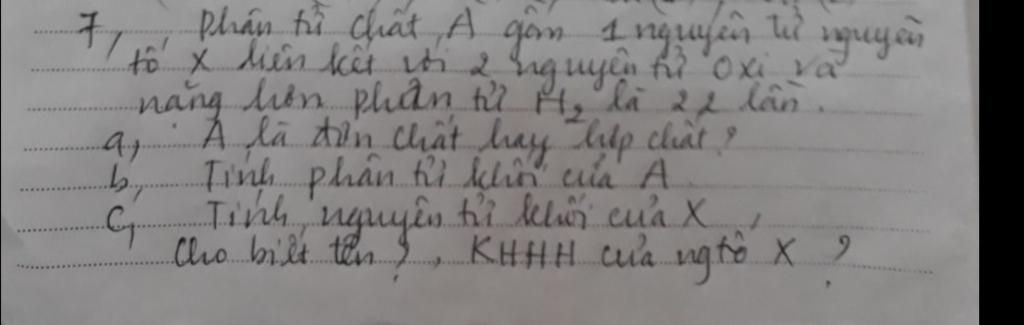 7, Phân tử chất A gồm 1 nguyên tử nguyên
tố X liên kết với 2 nguyên tử Oxi và
nặng hơn phân tử H₂ là 22 lần.
a, A là đơn chất hay hợp chất?
b, Tính phân tử khối của A
c, Tính nguyên tử khối của X,
Cho biết tên?, KHHH của ngtố X ?